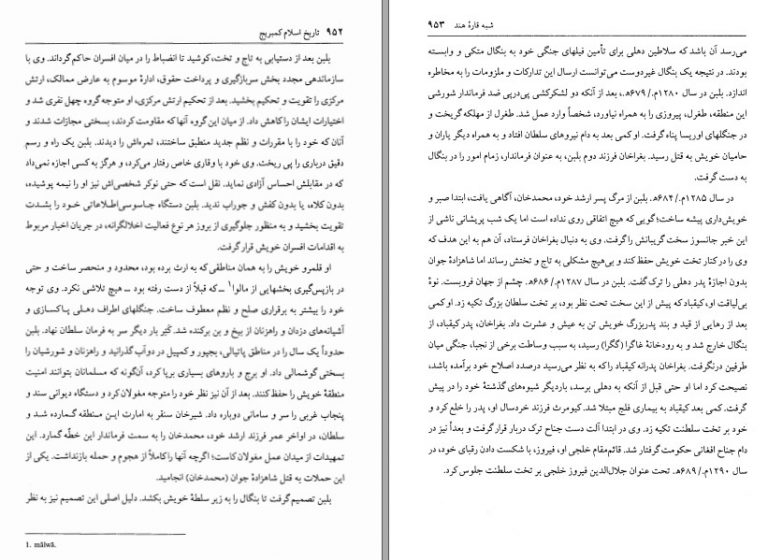 ۹۵۲ تاریخ اسلام کمبریج
بلبن بعد از دستیابی به تاج و تخت، کوشید تا انضباط را در میان افسران حاکم گرداند. وی با
سازماندهی مجدد بخش سربازگیری و پرداخت حقوق، ادارهٔ موسوم به عارض ممالک، ارتش
مرکزی را تقویت و تحکیم بخشید. بعد از تحکیم ارتش مرکزی، او متوجه گروه چهل نفری شد و
اختیارات ایشان را کاهش داد. از میان این گروه آنها که مقاومت کردند، بسختی مجازات شدند و
آنان که خود را با مقررات و نظم جدید منطبق ساختند، ثمره‌اش را دیدند. بلبن یک راه و رسم
دقیق درباری را پی ریخت. وی خود با وقاری خاص رفتار می‌کرد، و هرگز به کسی اجازه نمی‌داد
که در مقابلش احساس آزادی نماید. نقل است که حتی نوکر شخصی‌اش نیز او را نیمه پوشیده،
بدون کلاه، یا بدون کفش و جوراب ندید. بلبن دستگاه جاسوسی-اطلاعاتی خود را بشدت
تقویت بخشید و به منظور جلوگیری از بروز هر نوع فعالیت اخلالگرانه، در جریان اخبار مربوط
به اقدامات افسران خویش قرار گرفت.
او قلمرو خویش را به همان مناطقی که به ارث برده بود، محدود و منحصر ساخت و حتی
در بازپس‌گیری بخشهایی از مالوا۱ ـ که قبلاً از دست رفته بود ـ هیچ تلاشی نکرد. وی توجه
خود را بیشتر به برقراری صلح و نظم معطوف ساخت. جنگلهای اطراف دهلی پاکسازی و
آشیانه‌های دزدان و راهزنان از بیخ و بن برکنده شد. گتر بار دیگر سر به فرمان سلطان نهاد. بلبن
حدوداً یک سال را در مناطق پاتیالی، بجپور و کمپیل در دوآب گذرانید و راهزنان و شورشیان را
بسختی گوشمالی داد. او برج و باروهای بسیاری برپا کرد، آنگونه که مسلمانان بتوانند امنیت
منطقهٔ خویش را حفظ کنند. بعد از آن نیز نظر خود را متوجه مغولان کرد و دستگاه دیوانی سند و
پنجاب غربی را سر و سامانی دوباره داد. شیرخان سنقر به امارت این منطقه گمارده شد و
سلطان، در اواخر عمر فرزند ارشد خود، محمدخان را به سمت فرماندار این خطّه گمارد. این
تمهیدات از میدان عمل مغولان کاست؛ اگرچه آنها را کاملاً از هجوم و حمله بازنداشت. یکی از
این حملات به قتل شاهزادهٔ جوان (محمدخان) انجامید.
بلبن تصمیم گرفت تا بنگال را به زیر سلطهٔ خویش بکشد. دلیل اصلی این تصمیم نیز به نظر
1. mālwā.
شبه قارهٔ هند ۹۵۳
می‌رسد آن باشد که سلاطین دهلی برای تأمین فیلهای جنگی خود به بنگال متکی و وابسته
بودند. در نتیجه یک بنگال غیردوست می‌توانست ارسال این تدارکات و ملزومات را به مخاطره
اندازد. بلبن در سال ۱۲۸۰م./۶۷۹ه‍.، بعد از آنکه دو لشکرکشی پی‌درپی ضد فرماندار شورشی
این منطقه، طغرل، پیروزی را به همراه نیاورد، شخصاً وارد عمل شد. طغرل از مهلکه گریخت و
در جنگلهای اوریسا پناه گرفت. او کمی بعد به دام نیروهای سلطان افتاد و به همراه دیگر یاران و
حامیان خویش به قتل رسید. بغراخان فرزند دوم بلبن، به عنوان فرماندار، زمام امور را در بنگال
به دست گرفت.
در سال ۱۲۸۵م./۶۸۴ه‍. بلبن از مرگ پسر ارشد خود، محمدخان، آگاهی یافت، ابتدا صبر و
خویش‌داری پیشه ساخت؛ گویی که هیچ اتفاقی روی نداده است اما یک شب پریشانی ناشی از
این خبر جانسوز سخت گریبانش را گرفت. وی به دنبال بغراخان فرستاد، آن هم به این هدف که
وی را در کنار تخت خویش حفظ کند و بی‌هیچ مشکلی به تاج و تختش رساند اما شاهزادهٔ جوان
بدون اجازهٔ پدر دهلی را ترک گفت. بلبن در سال ۱۲۸۷م./۶۸۶ه‍. چشم از جهان فروبست. نوهٔ
بی‌لیاقت او، کیقباد که پیش از این سخت تحت نظر بود، بر تخت سلطان بزرگ تکیه زد. او کمی
بعد از رهایی از قید و بند پدربزرگ خویش تن به عیش و عشرت داد. بغراخان، پدر کیقباد، از
بنگال خارج شد و به رودخانهٔ غاگرا (گگرا) رسید، به سبب وساطت برخی از نجبا، جنگی میان
طرفین درنگرفت. بغراخان پدرانه کیقباد را که به نظر می‌رسید درصدد اصلاح خود برآمده باشد،
نصیحت کرد اما او حتی قبل از آنکه به دهلی برسد، باردیگر شیوه‌های گذشتهٔ خود را در پیش
گرفت. کمی بعد کیقباد به بیماری فلج مبتلا شد. کیومرث فرزند خردسال او، پدر را خلع کرد و
خود بر تخت سلطنت تکیه زد. وی در ابتدا آلت دست جناح ترک دربار قرار گرفت و بعداً نیز در
دام جناح افغانی حکومت گرفتار شد. قائم‌مقام خلجی او، فیروز، با شکست دادن رقبای خود، در
سال ۱۲۹۰م./۶۸۹ه‍. تحت عنوان جلال‌الدین فیروز خلجی بر تخت سلطنت جلوس کرد.